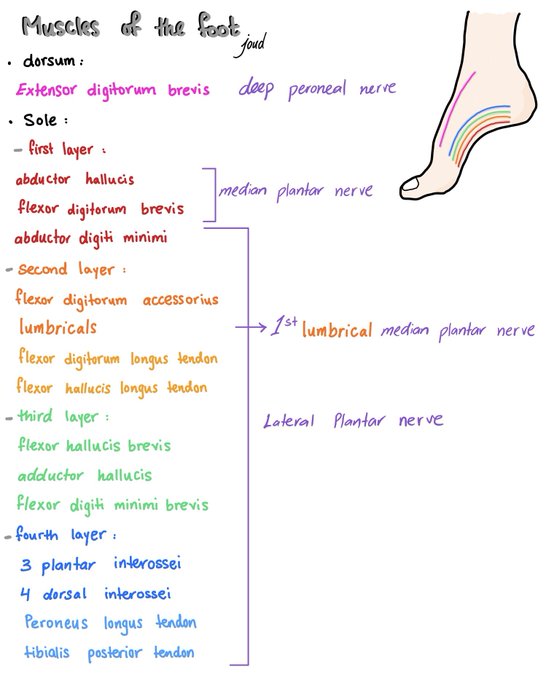 Muscles of the foot
joud
• dorsum:
Extensor digitorum brevis deep peroneal nerve
• Sole:
- first layer:
abductor hallucis
median plantar nerve
flexor digitorum brevis
abductor digiti minimi
- second layer:
flexor digitorum accessorius
lumbricals → 1st lumbrical median plantar nerve
flexor digitorum longus tendon
flexor hallucis longus tendon
- third layer:
Lateral Plantar nerve
flexor hallucis brevis
adductor hallucis
flexor digiti minimi brevis
- fourth layer:
3 plantar interossei
4 dorsal interossei
Peroneus longus tendon
tibialis posterior tendon